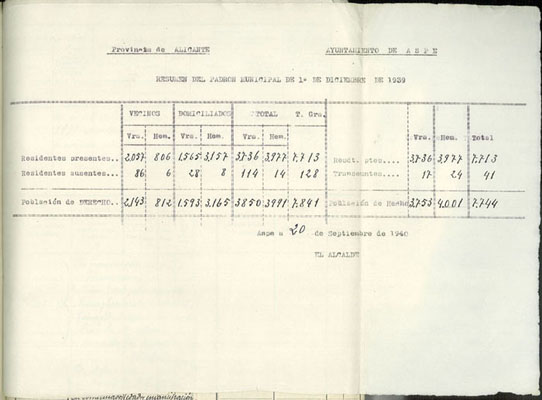 Provincia de ALICANTE AYUNTAMIENTO DE A S P E
RESUMEN DEL PADRON MUNICIPAL DE 1º DE DICIEMBRE DE 1939
VECINOS DOMICILIADOS TOTAL T. Gra.
Vrs. Hem. Vrs. Hem. Vrs. Hem. Vrs. Hem. Total
Residentes presentes.. 2.057 806 1.565 3.157 3736 3.977 7.713 Resdt. ptes.... 3.736 3.977 7.713
Residentes ausentes... 86 6 28 8 114 14 128 Transeuntes.... 17 24 41
Población de DERECHO.. 2.143 812 1.593 3.165 3850 3991 7.841 Población de Hecho 3.753 4.001 7.744
Aspe a 20 de Septiembre de 1940
EL ALCALDE